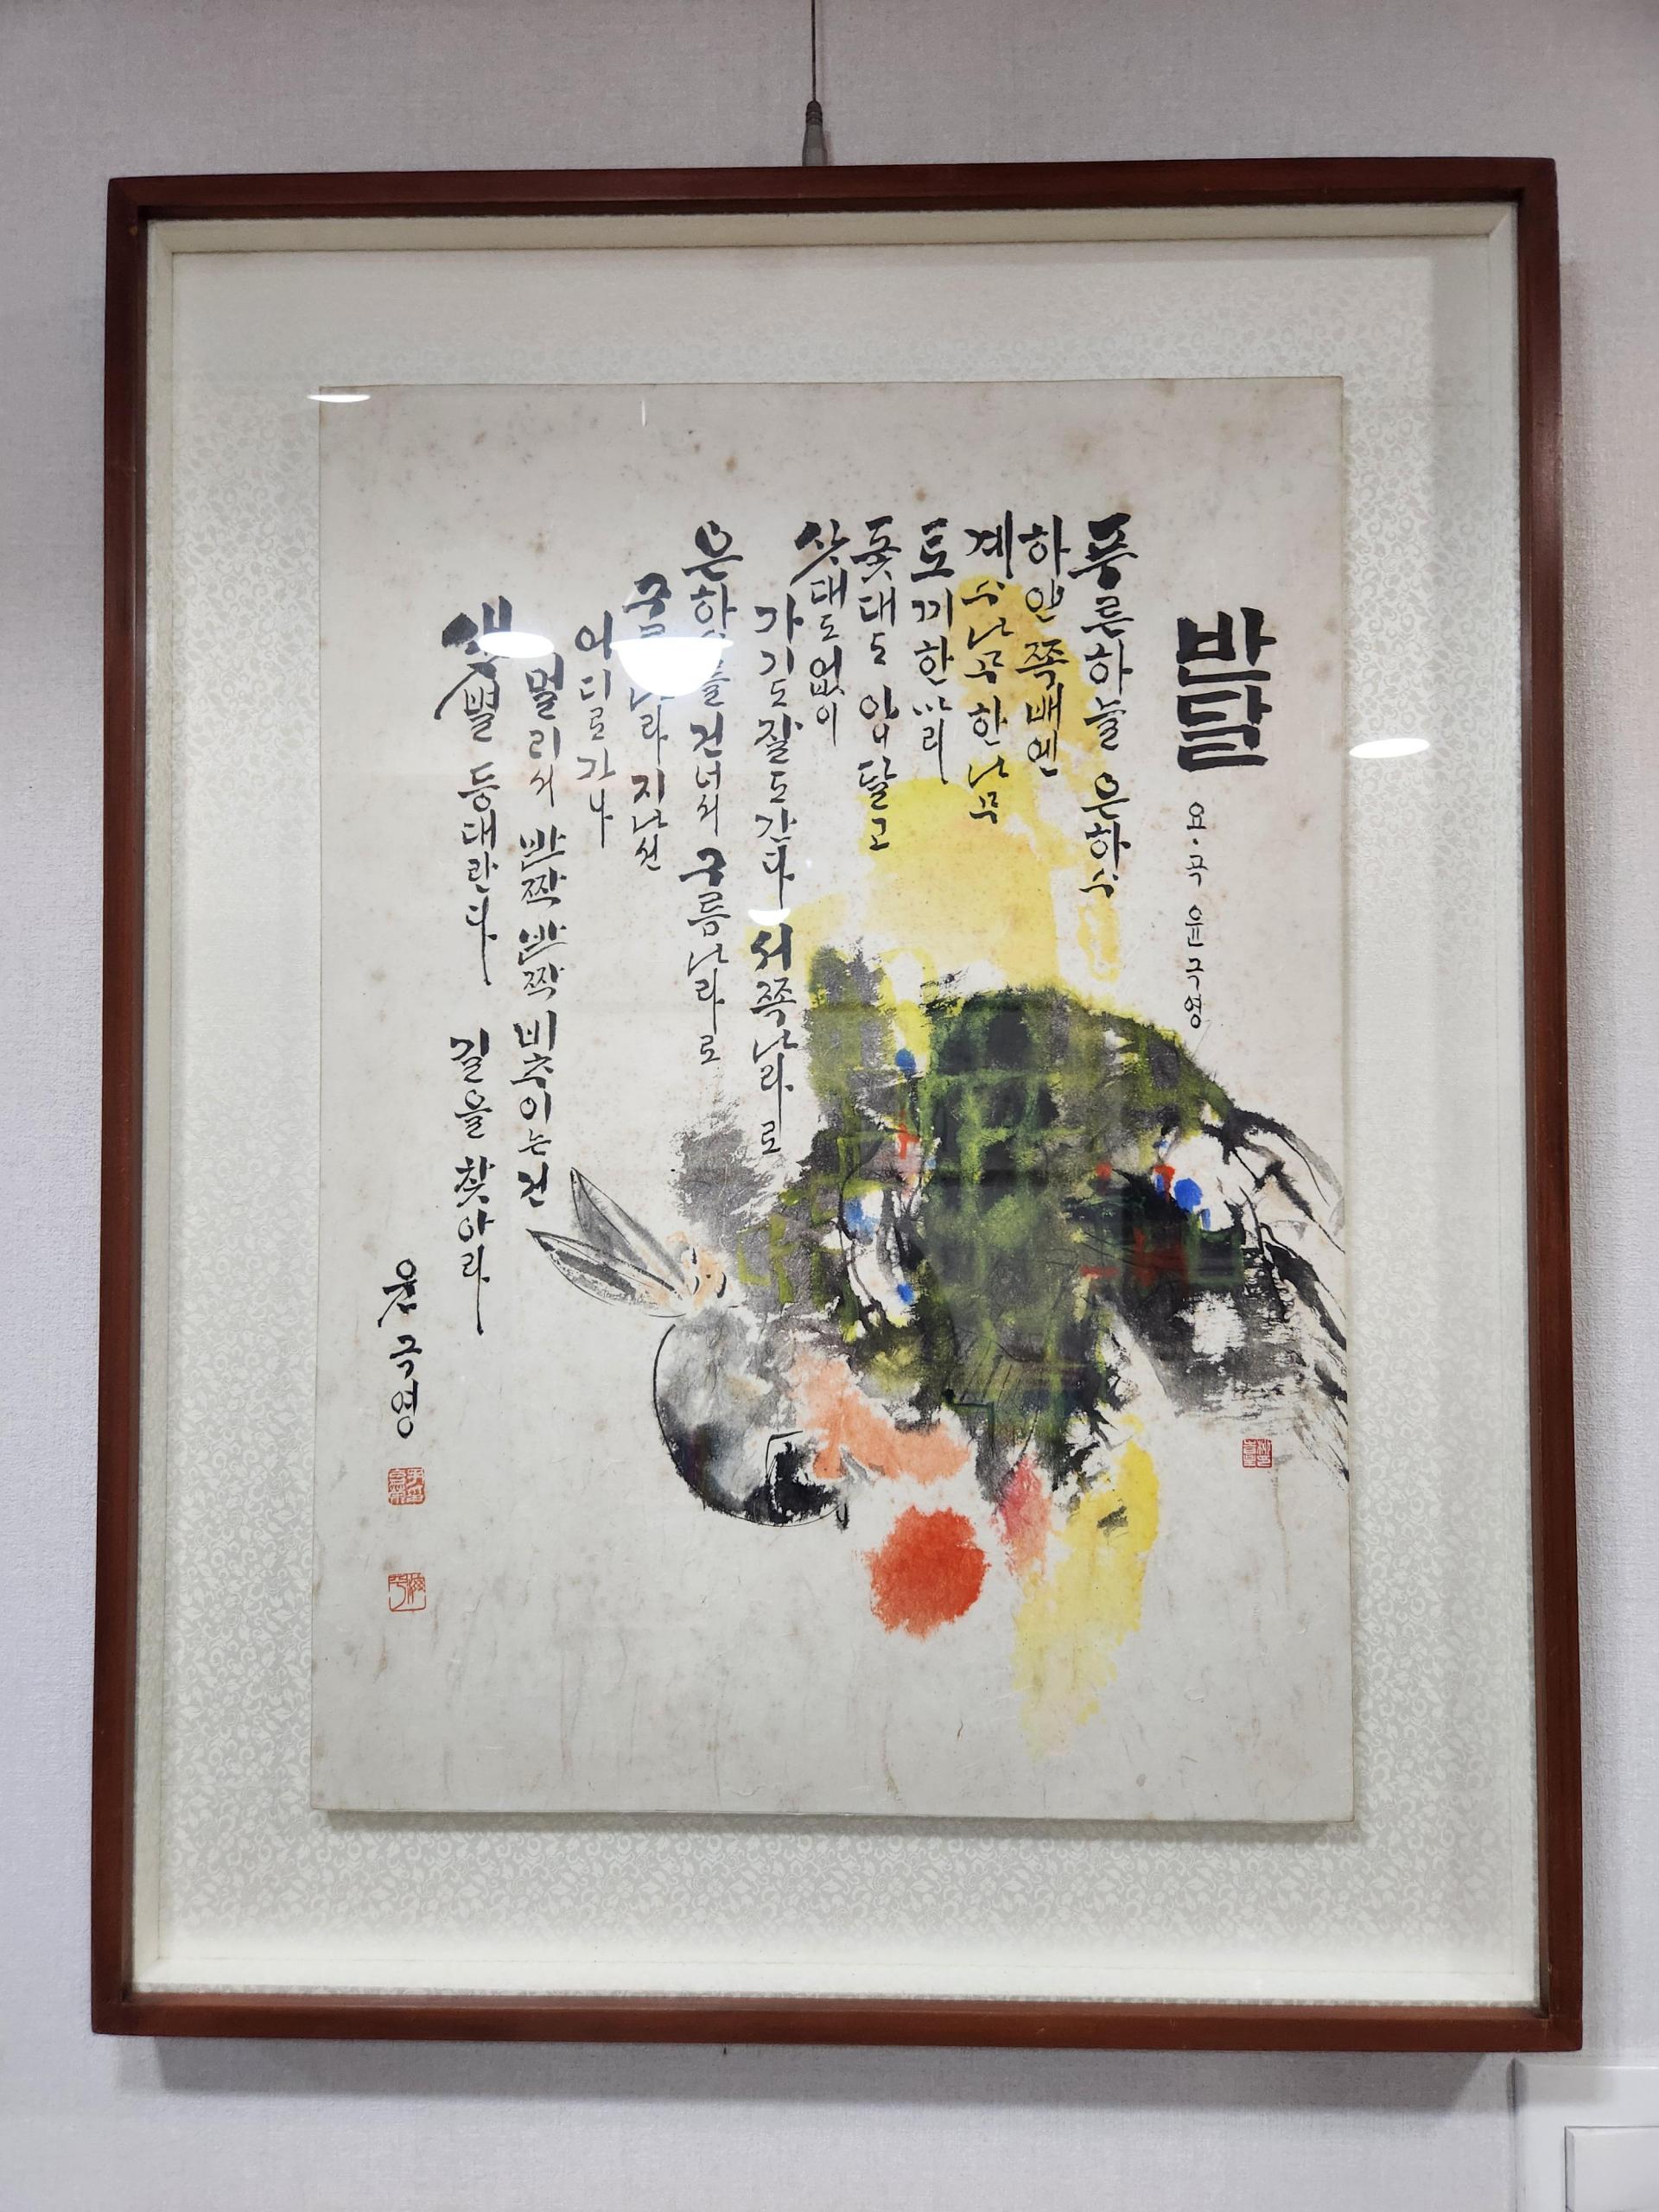 반달
요·곡 윤극영
푸른하늘 은하수
하얀 쪽배엔
계수나무 한나무
토끼한마리
돛대도 아니달고
삿대도없이
가기도잘도간다 서쪽나라로
은하수를건너서 구름나라로
구름나라 지나선
어디로가나
멀리서 반짝반짝 비추이는건
샛별 등대란다 길을 찾아라
윤극영